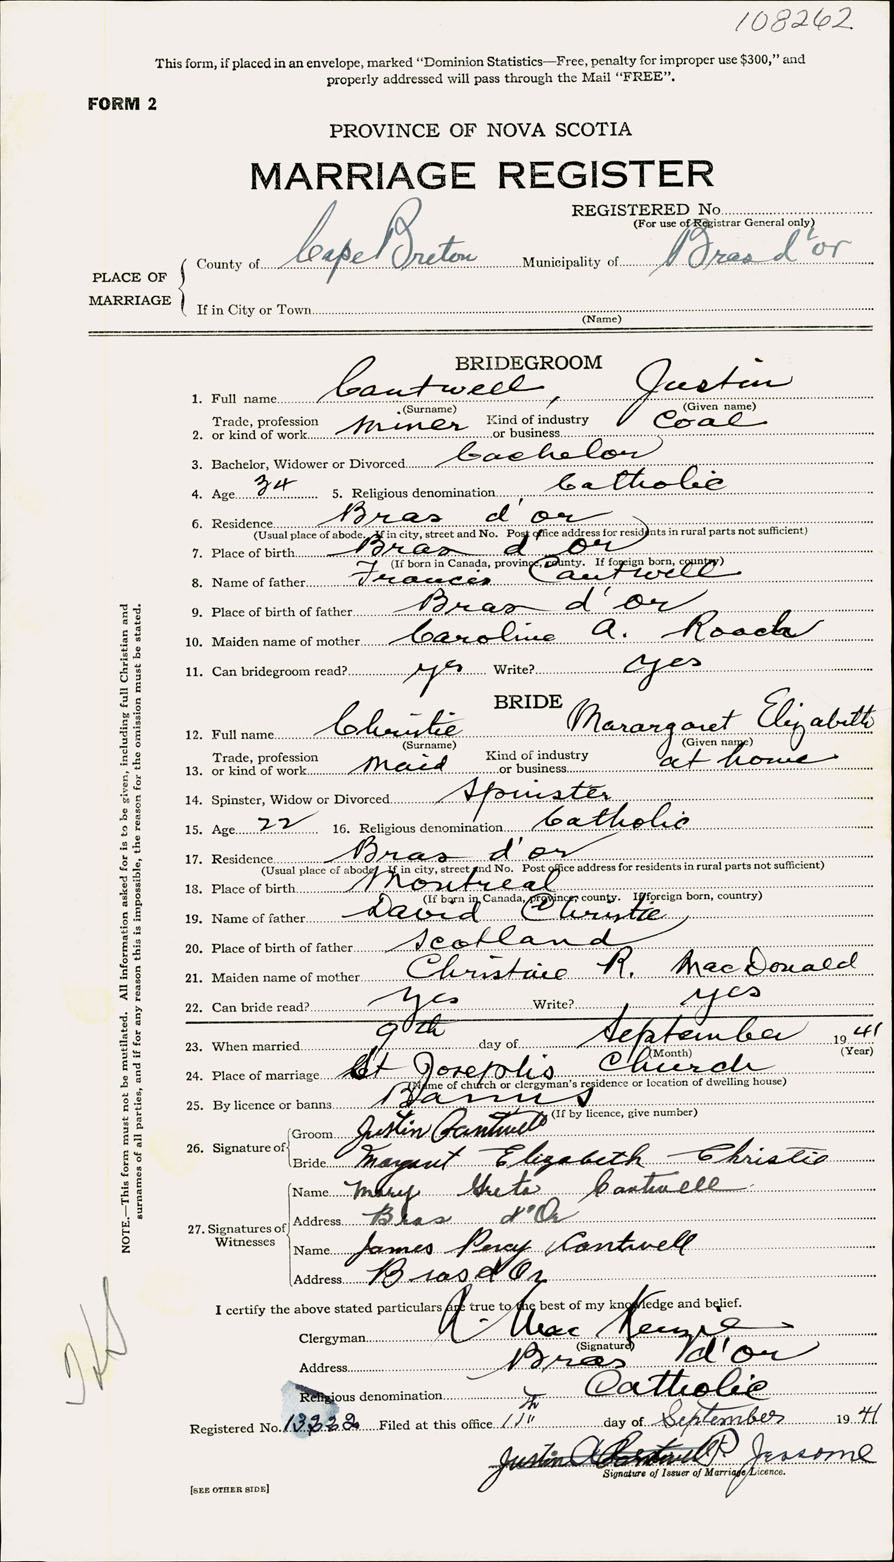 108262
This form, if placed in an envelope, marked "Dominion Statistics—Free, penalty for improper use $300," and
properly addressed will pass through the Mail "FREE".
FORM 2
PROVINCE OF NOVA SCOTIA
MARRIAGE REGISTER
REGISTERED No.
(For use of Registrar General only)
PLACE OF MARRIAGE
County of Cape Breton Municipality of Bras d'or
If in City or Town
(Name)
BRIDEGROOM
1. Full name Cantwell, Justin
(Surname) (Given name)
2. Trade, profession or kind of work miner Kind of industry or business Coal
3. Bachelor, Widower or Divorced bachelor
4. Age 34 5. Religious denomination Catholic
6. Residence Bras d'or
(Usual place of abode. If in city, street and No. Post office address for residents in rural parts not sufficient)
7. Place of birth Bras d'or
(If born in Canada, province, county. If foreign born, country)
8. Name of father Francis Cantwell
9. Place of birth of father Bras d'or
10. Maiden name of mother Caroline A. Roach
11. Can bridegroom read? yes Write? yes
BRIDE
12. Full name Christie Marargaret Elizabeth
(Surname) (Given name)
13. Trade, profession or kind of work maid Kind of industry or business at home
14. Spinster, Widow or Divorced Spinster
15. Age 22 16. Religious denomination Catholic
17. Residence Bras d'or
(Usual place of abode. If in city, street and No. Post office address for residents in rural parts not sufficient)
18. Place of birth Montreal
(If born in Canada, province, county. If foreign born, country)
19. Name of father David Christie
20. Place of birth of father Scotland
21. Maiden name of mother Christine R. MacDonald
22. Can bride read? yes Write? yes
23. When married 9th day of September 1941
(Month) (Year)
24. Place of marriage St Joseph's Church
(Name of church or clergyman's residence or location of dwelling house)
25. By licence or banns Banns
(If by licence, give number)
26. Signature of Groom Justin Cantwell
Bride Margaret Elizabeth Christie
27. Signatures of Witnesses
Name Mary Greta Cantwell
Address Bras d'Or
Name James Percy Cantwell
Address Bras d'Or
I certify the above stated particulars are true to the best of my knowledge and belief.
Clergyman A. MacKenzie
(Signature)
Address Bras d'or
Religious denomination Catholic
Registered No. Filed at this office 11th day of September 1941
Justin Jessome
Signature of Issuer of Marriage Licence.
[SEE OTHER SIDE]
NOTE.—This form must not be mutilated. All information asked for is to be given, including full Christian and
surnames of all parties, and if for any reason this is impossible, the reason for the omission must be stated.